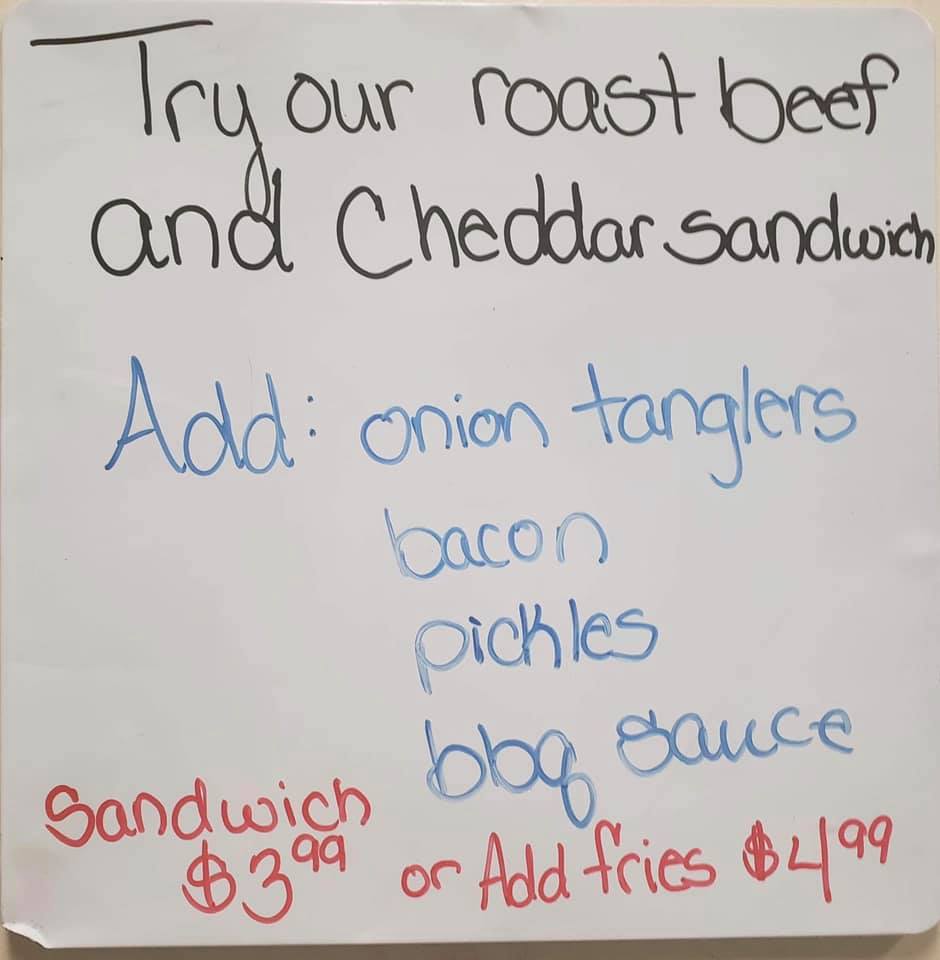 Try our roast beef
and Cheddar sandwich
Add: onion tanglers
bacon
pickles
bbq sauce
Sandwich
$3.99 or Add fries $4.99